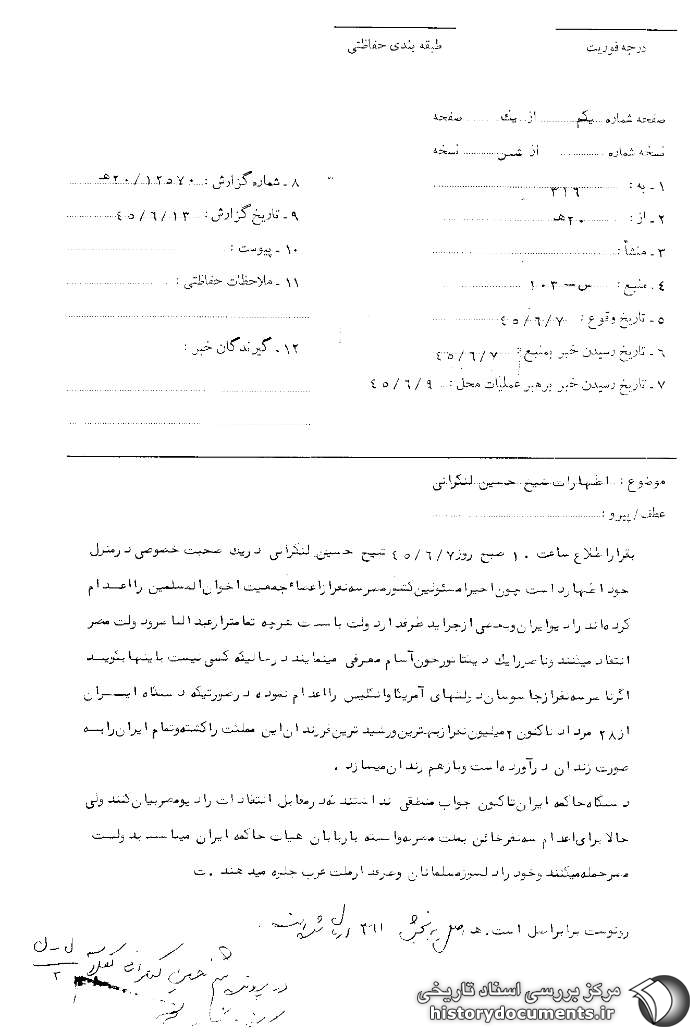 درجه فوریت
طبقه بندی حفاظتی
صفحه شماره یکم از یک صفحه
نسخه شماره از شش نسخه
۱ - به : ۳۱۶
۲ - از : ۲۰ هـ
۳ - منشأ :
۴ - منبع : س - ۱۰۳
۵ - تاریخ وقوع : ۴۵/۶/۷
۶ - تاریخ رسیدن خبر بمنبع : ۴۵/۶/۷
۷ - تاریخ رسیدن خبر برهبر عملیات محل : ۴۵/۶/۹
۸ - شماره گزارش : ۲۰/۱۲۵۷۰ هـ
۹ - تاریخ گزارش : ۴۵/۶/۱۳
۱۰ - پیوست :
۱۱ - ملاحظات حفاظتی :
۱۲ - گیرندگان خبر :
موضوع : اظهارات شیخ حسین لنکرانی
عطف/پیرو :
بقرار اطلاع ساعت ۱۰ صبح روز ۴۵/۶/۷ شیخ حسین لنکرانی در یک صحبت خصوصی در منزل
خود اظهار داشت چون اخیرا مسئولین کشور مصر سه نفر از اعضاء جمعیت اخوان المسلمین را اعدام
کرده‌اند رادیو ایران و بعضی از جراید طرفدار دولت با شدت هرچه تمامتر از عبدالناصر و دولت مصر
انتقاد میکنند و ناصر را یک دیکتاتور خون آشام معرفی مینمایند در حالیکه کسی نیست باینها بگوید
اگر ناصر سه نفر از جاسوسان دولتهای آمریکا و انگلیس را اعدام نموده در صورتیکه دستگاه ایران
از ۲۸ مرداد تاکنون ۲ میلیون نفر از بهترین و رشید ترین فرزندان این مملکت را کشته و تمام ایران را به
صورت زندان درآورده است و باز هم زندان میسازد .
دستگاه حاکمه ایران تاکنون جواب منطقی نداشتند که در مقابل انتقادات رادیو مصر بیان کنند ولی
حالا برای اعدام سه نفر خائن بملت مصر که وابسته باربابان هیات حاکمه ایران میباشند بدولت
مصر حمله میکنند و خود را دلسوز مسلمانان و طرفدار ملت عرب جلوه میدهند . ت
رونوشت برابر اصل است . هـ اصل در ۳۶۱
در پرونده شیخ حسین لنکرانی
مرکز بررسی اسناد تاریخی
historydocuments.ir